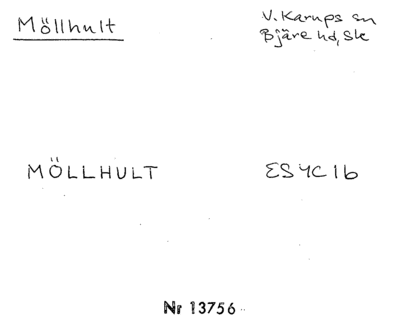 Möllhult
V. Karups sn
Bjäre hd, Sk
MÖLLHULT
ES4C1b
Nr 13756